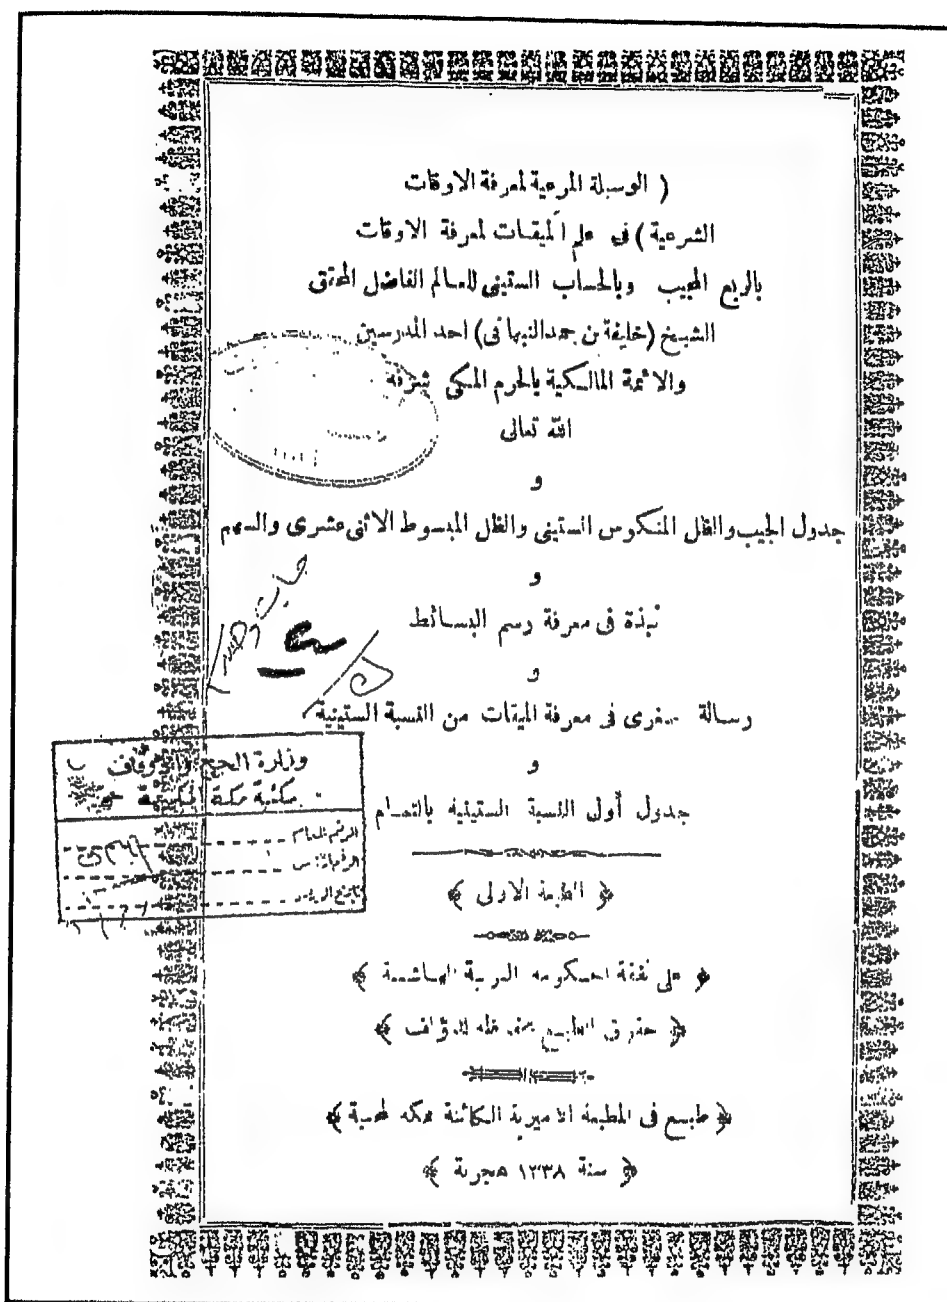 ( الوسيلة المرعية لمعرفة الاوقات
الشرعية ) في علم الميقات لمعرفة الاوقات
بالربع المجيب وبالحساب الستيني للعالم الفاضل المحقق
الشيخ (خليفة بن حمد النبهاني) احد المدرسين
والائمة المالكية بالحرم المكى شرفه
الله تعالى
و
جدول الجيب والظل المنكوس الستيني والظل المبسوط الاثنى عشرى والسهم
و
نبذة فى معرفة رسم البسائط
و
رسالة صغرى فى معرفة الميقات من النسبة الستينية
و
جدول أول النسبة الستينية بالتمام
﴿ الطبعة الاولى ﴾
﴿ على نفقة الحكومة العربية الهاشمية ﴾
﴿ حقوق الطبع محفوظه للمؤلف ﴾
﴿ طبع فى المطبعة الاميرية الكائنة بمكه المحمية ﴾
﴿ سنة ١٣٣٨ هجرية ﴾
وزارة الحج والأوقاف
مكتبة مكة
الرقم العام